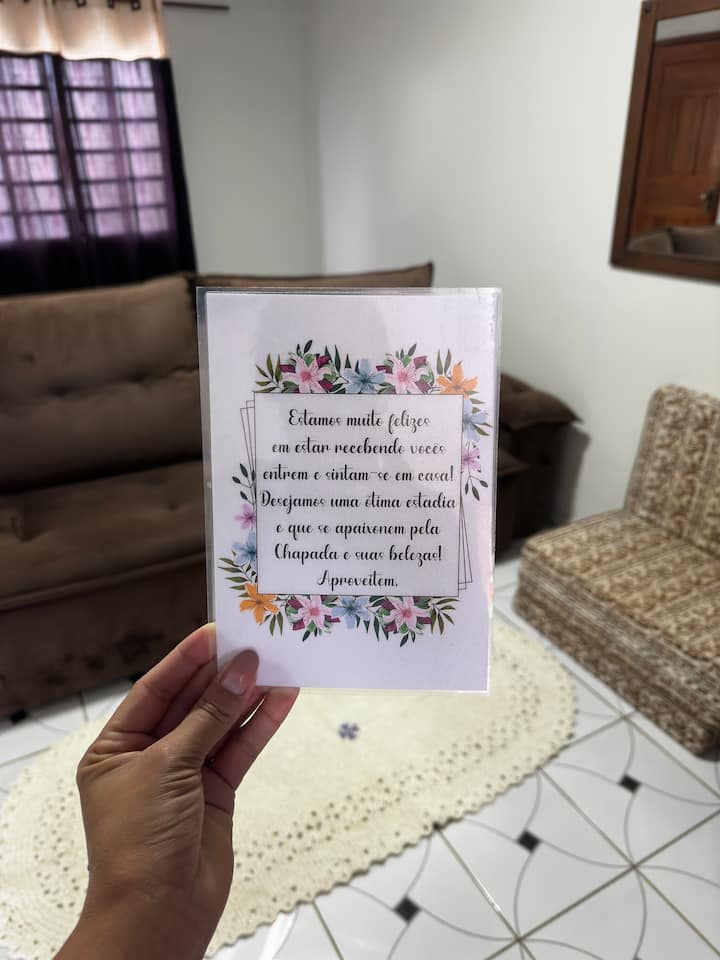 Estamos muito felizes
em estar recebendo vocês
entrem e sintam-se em casa!
Desejamos uma ótima estadia
e que se apaixonem pela
Chapada e suas belezas!
Aproveitem.